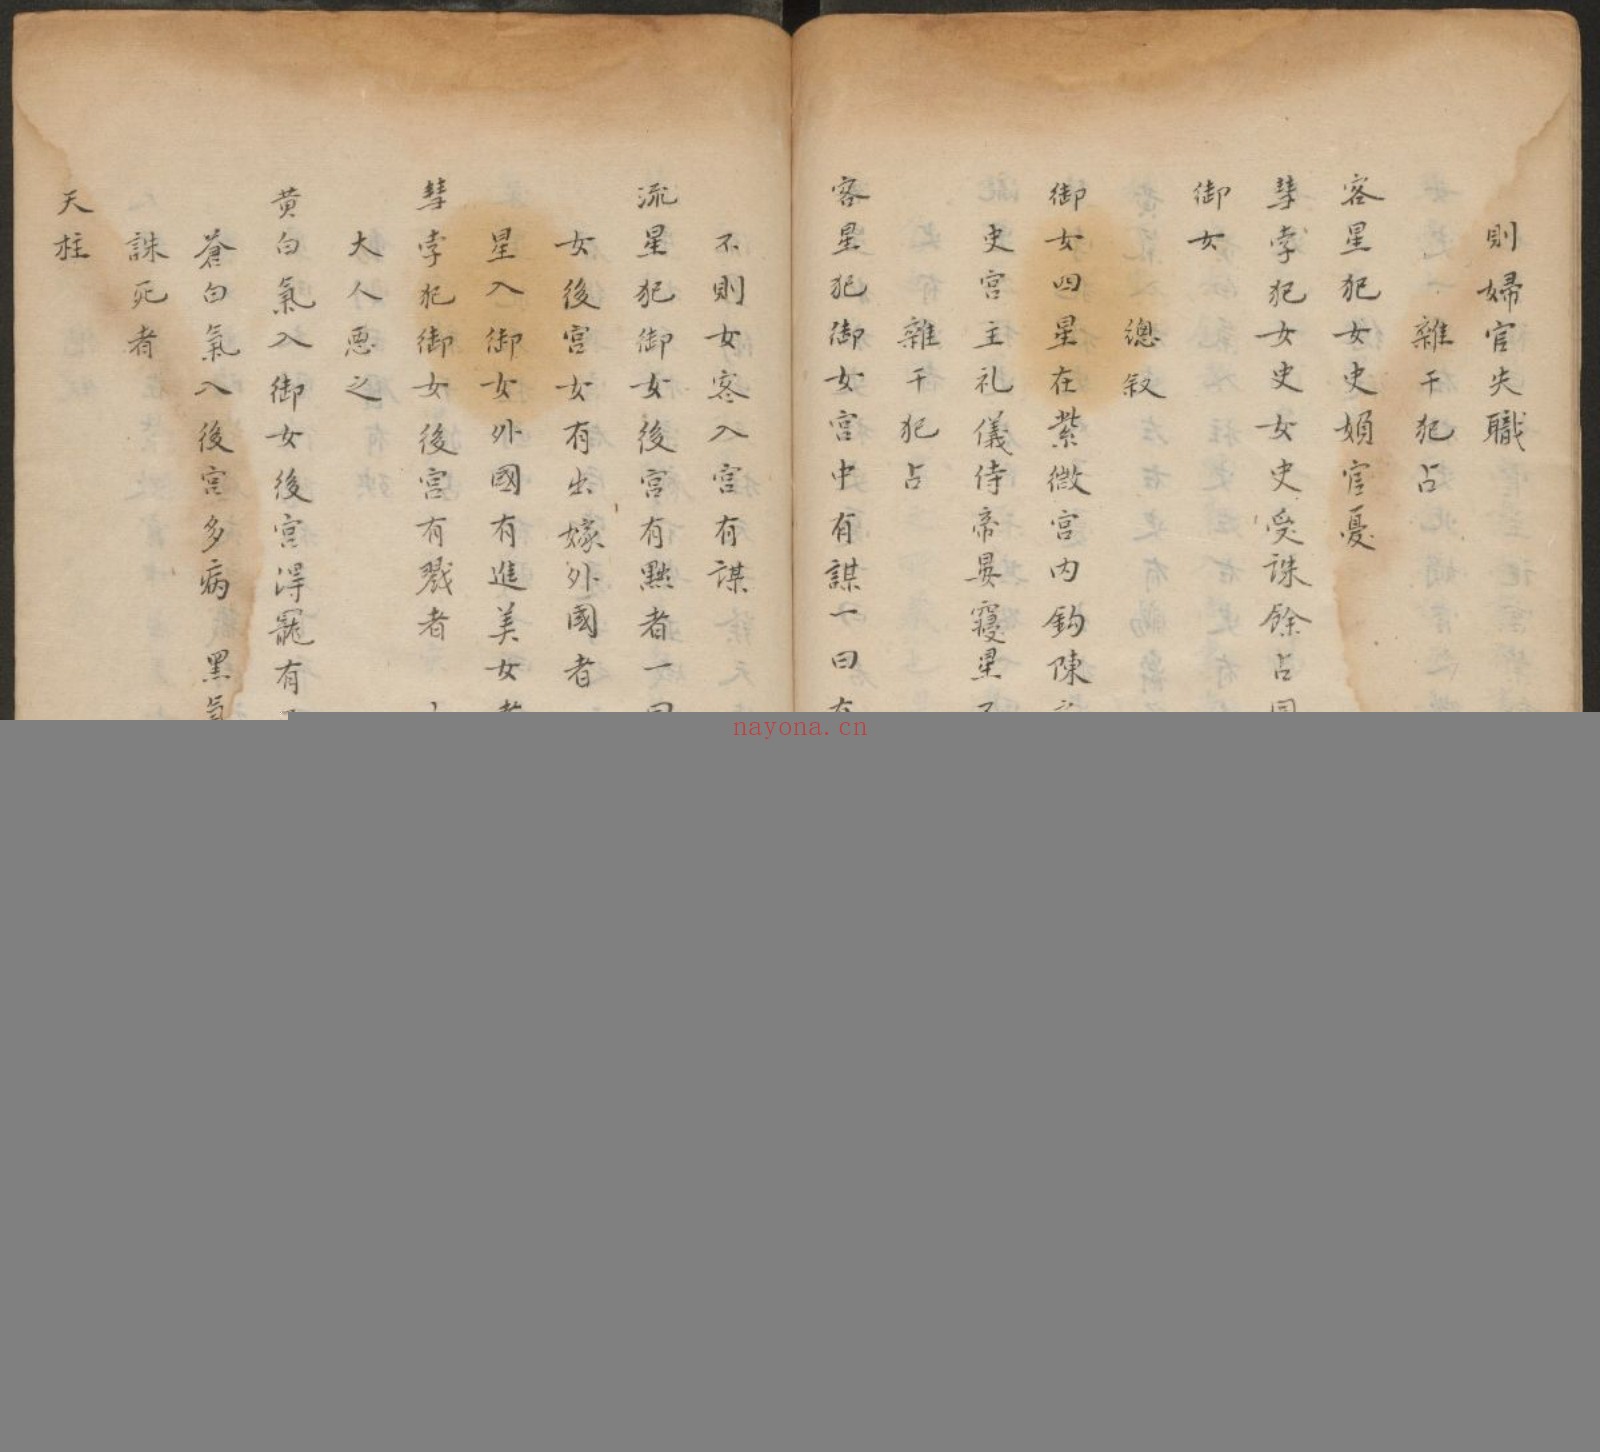 則婦官失職
雜干犯占
客星犯女史婦官憂
彗孛犯女史女史受誅餘占同
御女
總叙
御女四星在紫微宮内鈎陳
史宮主礼儀侍帝晏寢星
雜干犯占
客星犯御女宮中有謀一曰
不則女客入宮有謀
流星犯御女後宮有黜者一曰
女後宮女有出嫁外國者
星入御女外國有進美女者
彗孛犯御女後宮有戮者
大人惡之
黄白氣入御女後宮得寵有
蒼白氣入後宮多病 黑氣
誅死者
天柱
nayona.cn